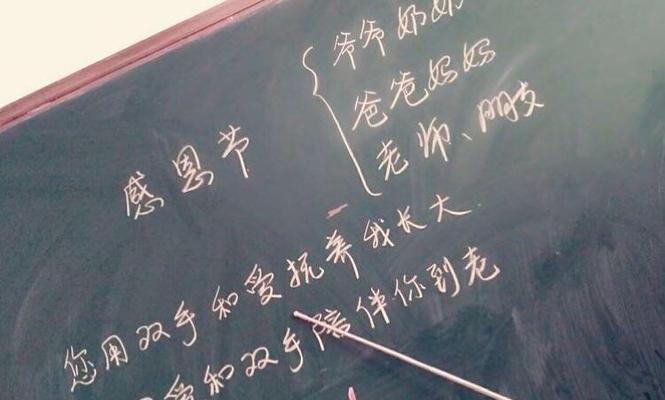 爷爷奶奶
爸爸妈妈
老师、朋友
感恩节
您用双手和爱抚养我长大
爱和双手陪伴你到老